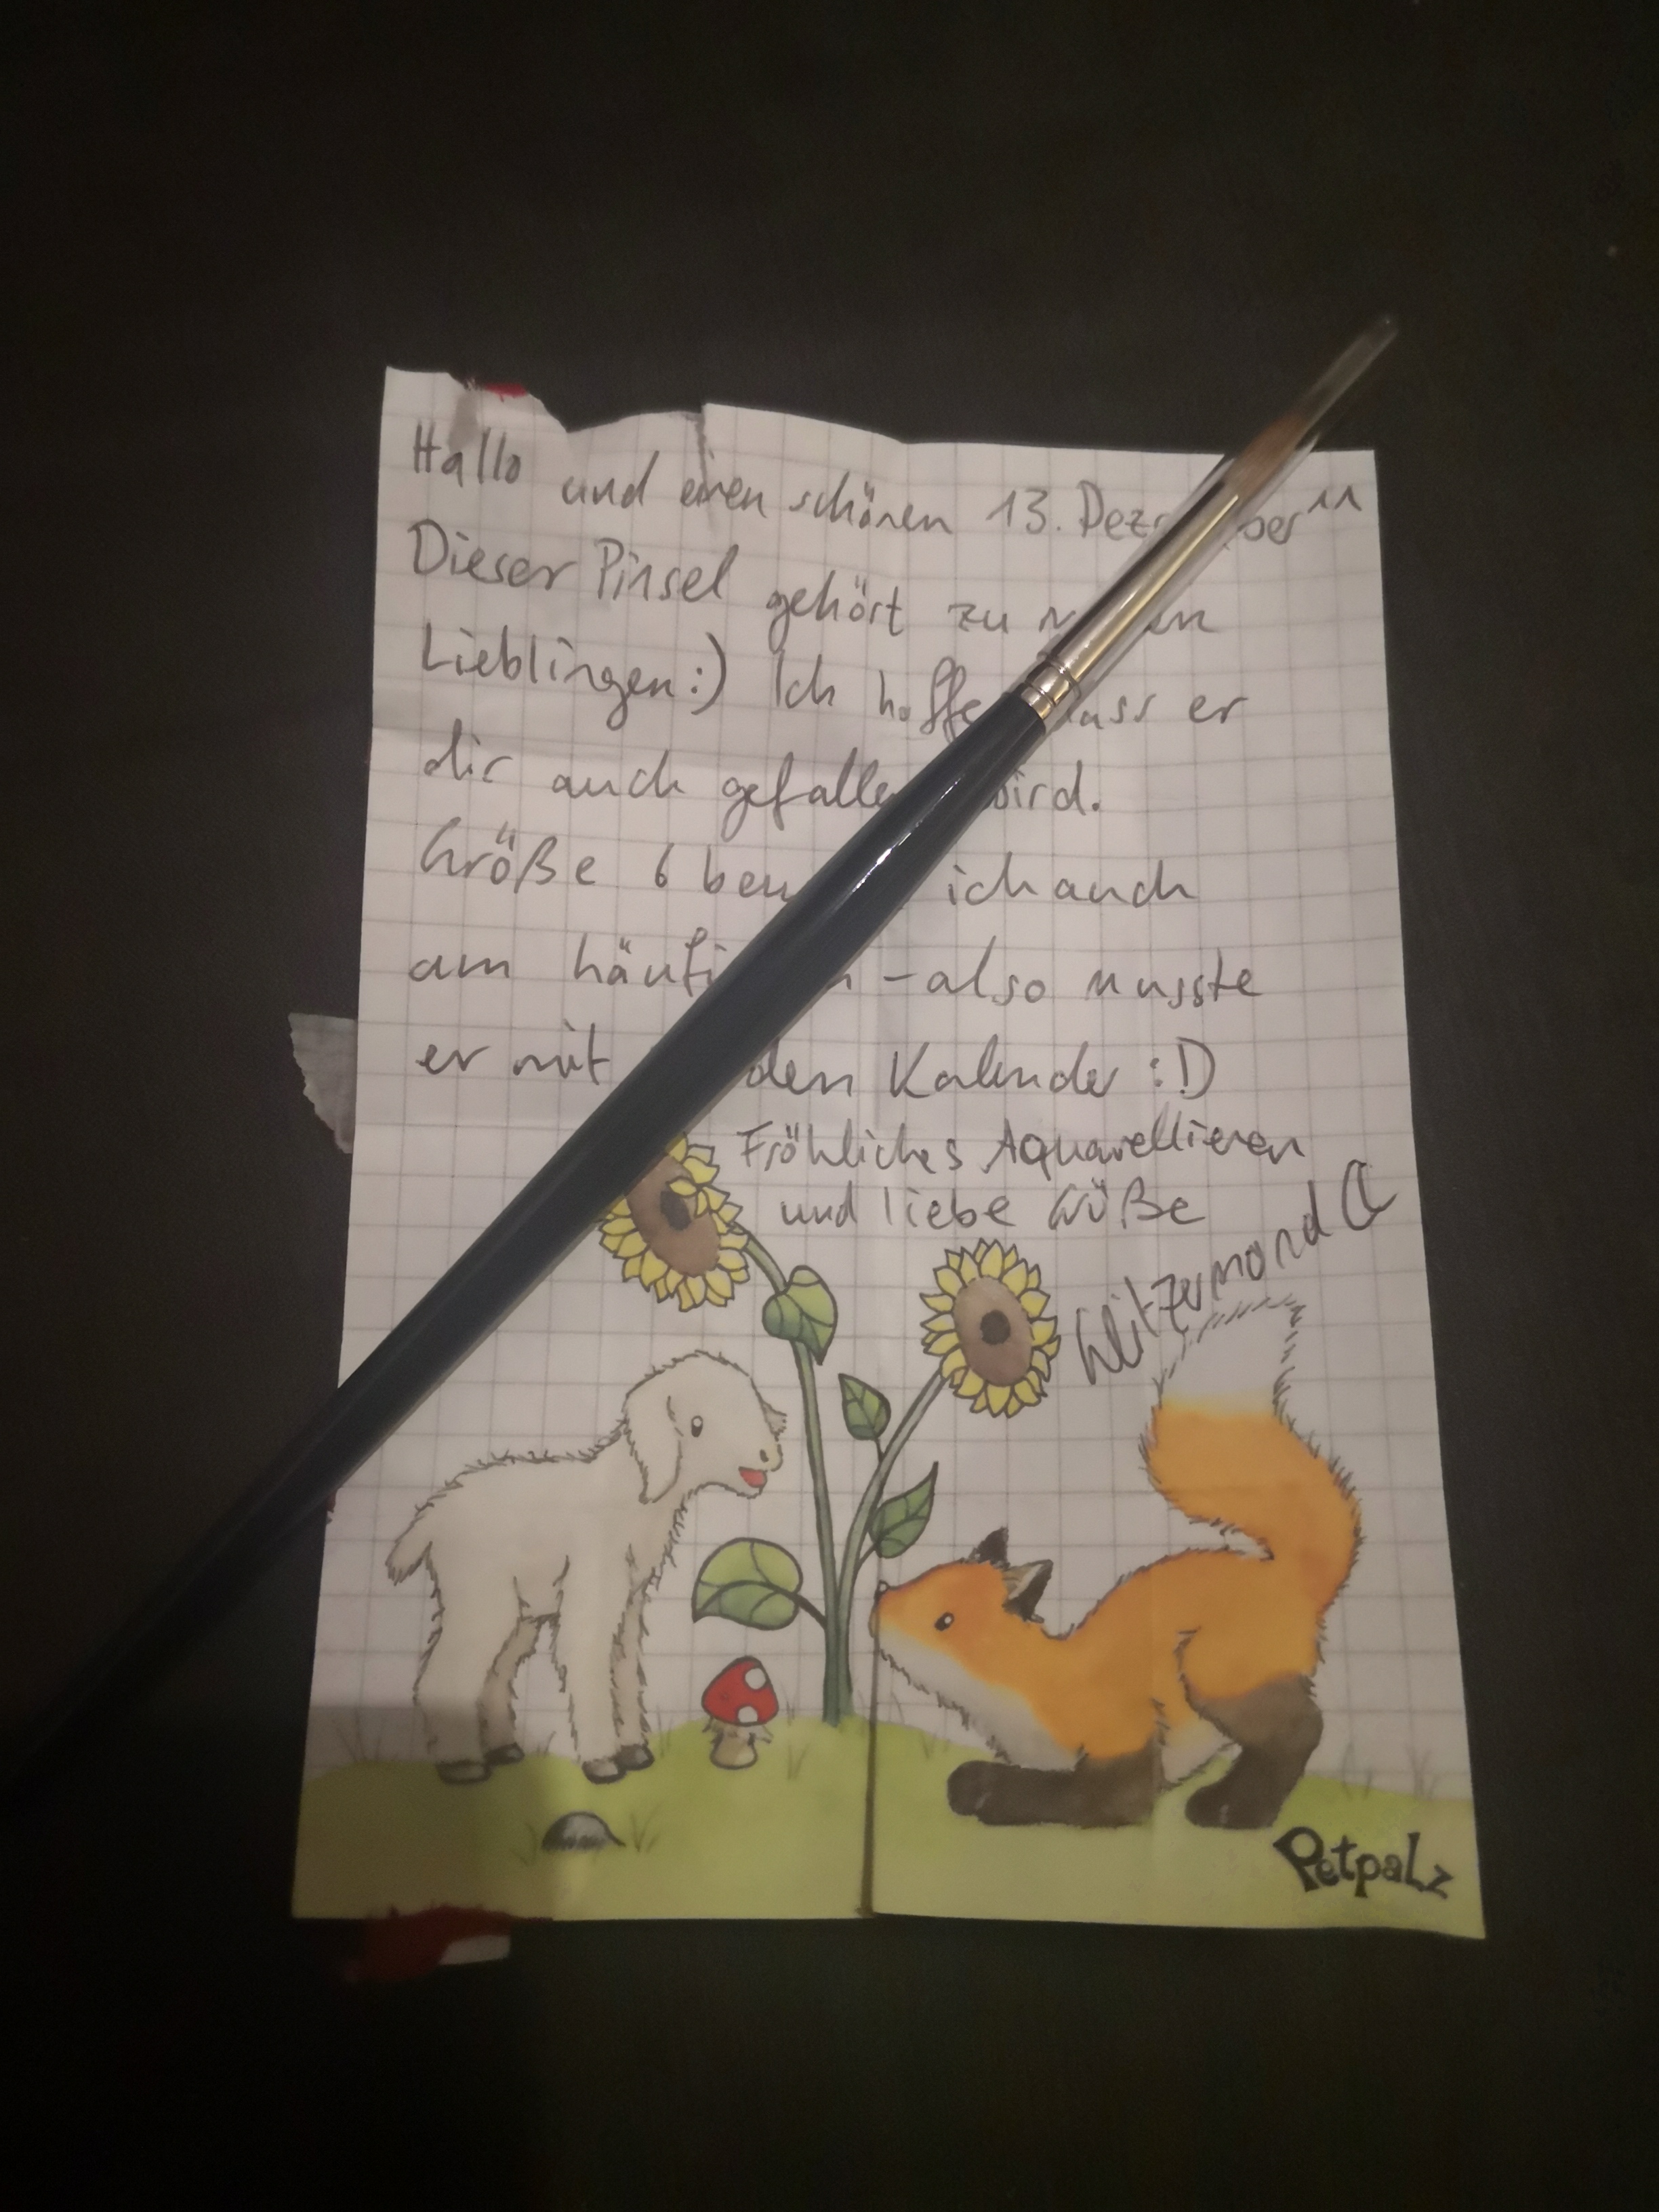 Hallo und einen schönen 13. Dezember ^^
Dieser Pinsel gehört zu meinen
Lieblingen :) Ich hoffe dass er
dir auch gefallen wird.
Größe 6 ich auch
am häufigsten - also musste
er mit den Kalender :D
Fröhliches Aquarellieren
und liebe Grüße
Glitzermond
Petpalz